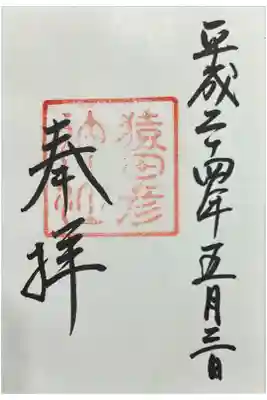 平成二十四年五月三日
猿田彦
奉拝